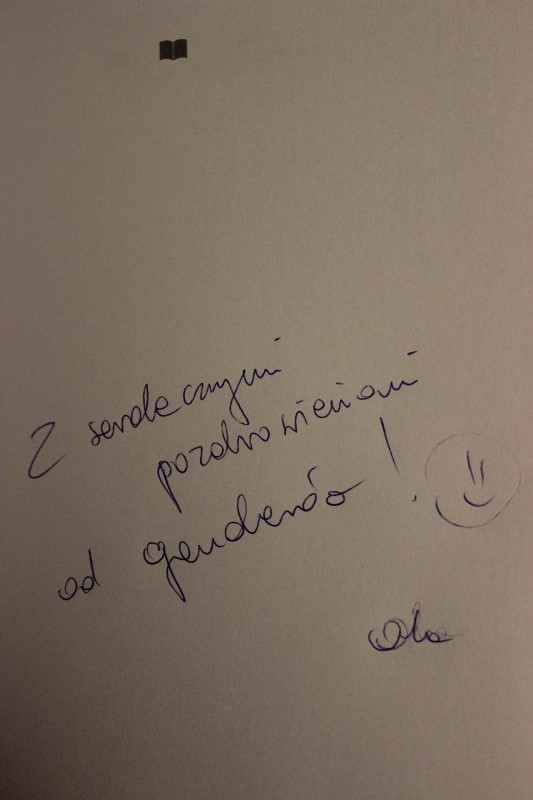 Z serdecznymi
pozdrowieniami
od genderów!
Ola